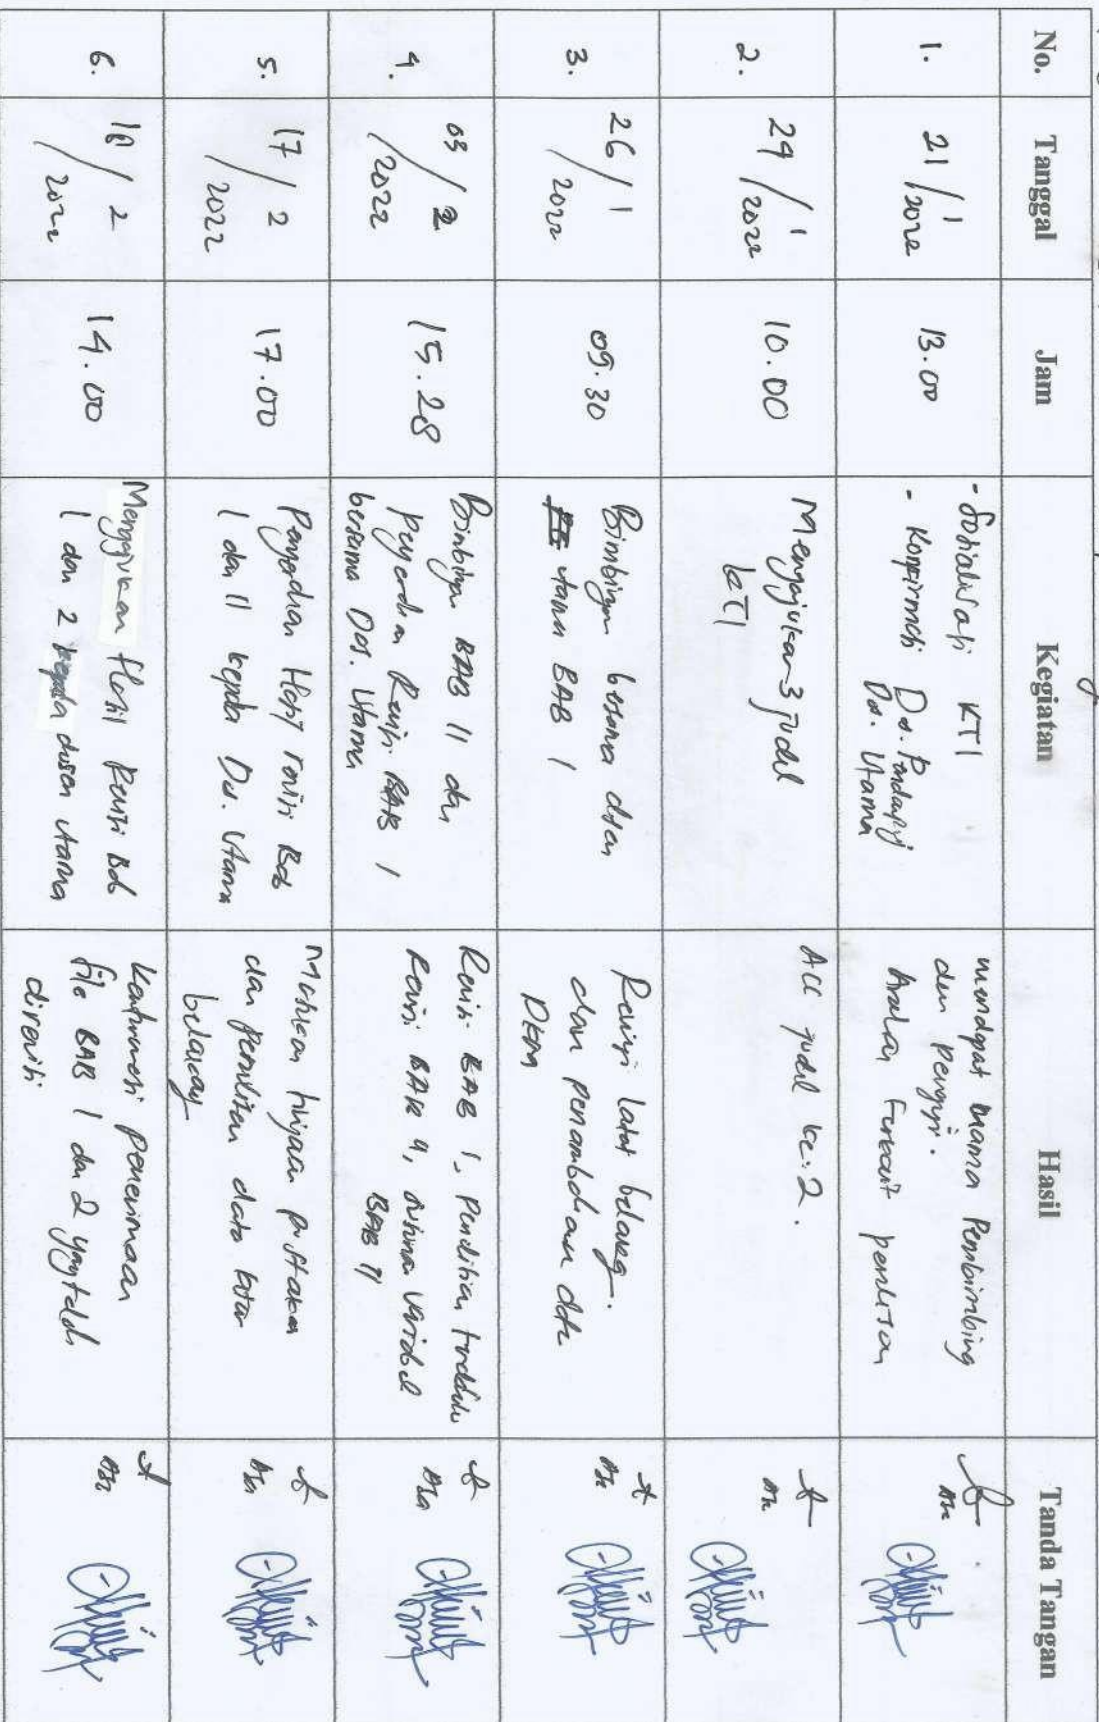 No. Tanggal Jam Kegiatan Hasil Tanda Tangan
1. 21/1/2022 13.00
- Sosialisasi KTI
- Konfirmasi Ds. Pendamping
Ds. Utama
mendapat nama Pembimbing
dan penguji.
Arahan terkait penulisan
2. 24/1/2022 10.00
Mengajukan 3 judul
KTI
Acc judul ke: 2.
3. 26/1/2022 09.30
Bimbingan bersama dosen
utama BAB 1
Revisi latar belakang.
dan penambahan data
4. 03/2/2022 15.28
Bimbingan BAB II dan
penyerahan Revisi BAB 1
bersama Dos. Utama
Revisi BAB 1,
Revisi BAB
BAB
5. 17/2/2022 17.00
Penyerahan Hasil revisi Bab
1 dan II kepada Ds. Utama
tinjauan pustaka
dan penulisan data latar
belakang
6. 18/2/2022 14.00
Mengajukan Hasil Revisi Bab
1 dan 2 kepada dosen utama
konfirmasi penerimaan
file BAB 1 dan 2 yang telah
direvisi